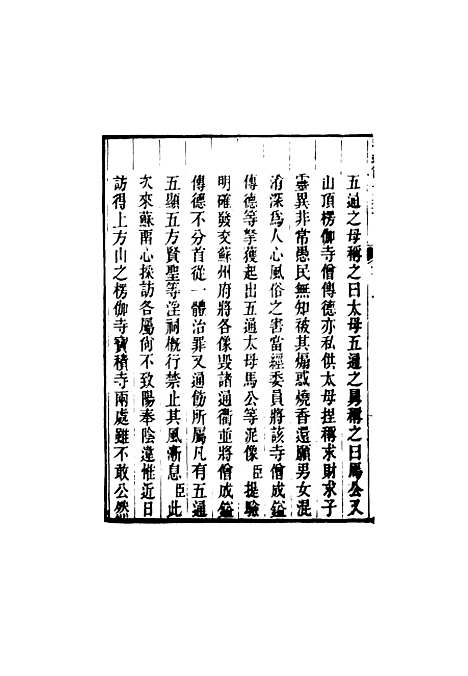 五通之母稱之曰太母五通之舅稱之曰馬公又
山頂楞伽寺僧傳德亦私供太母捏稱求財求子
靈異非常愚民無知被其煽惑燒香還願男女混
淆深爲人心風俗之害當經委員將該寺僧成鎰
傳德等拏獲起出五通太母馬公等泥像臣提驗
明確發交蘇州府將各像毀諸通衢並將僧成鎰
傳德不分首從一體治罪又通飭所屬凡有五通
五顯五方賢聖等淫祠概行禁止其風漸息臣此
次來蘇甫心採訪各屬尙不致陽奉陰違惟近日
訪得上方山之楞伽寺寶積寺兩處雖不敢公然